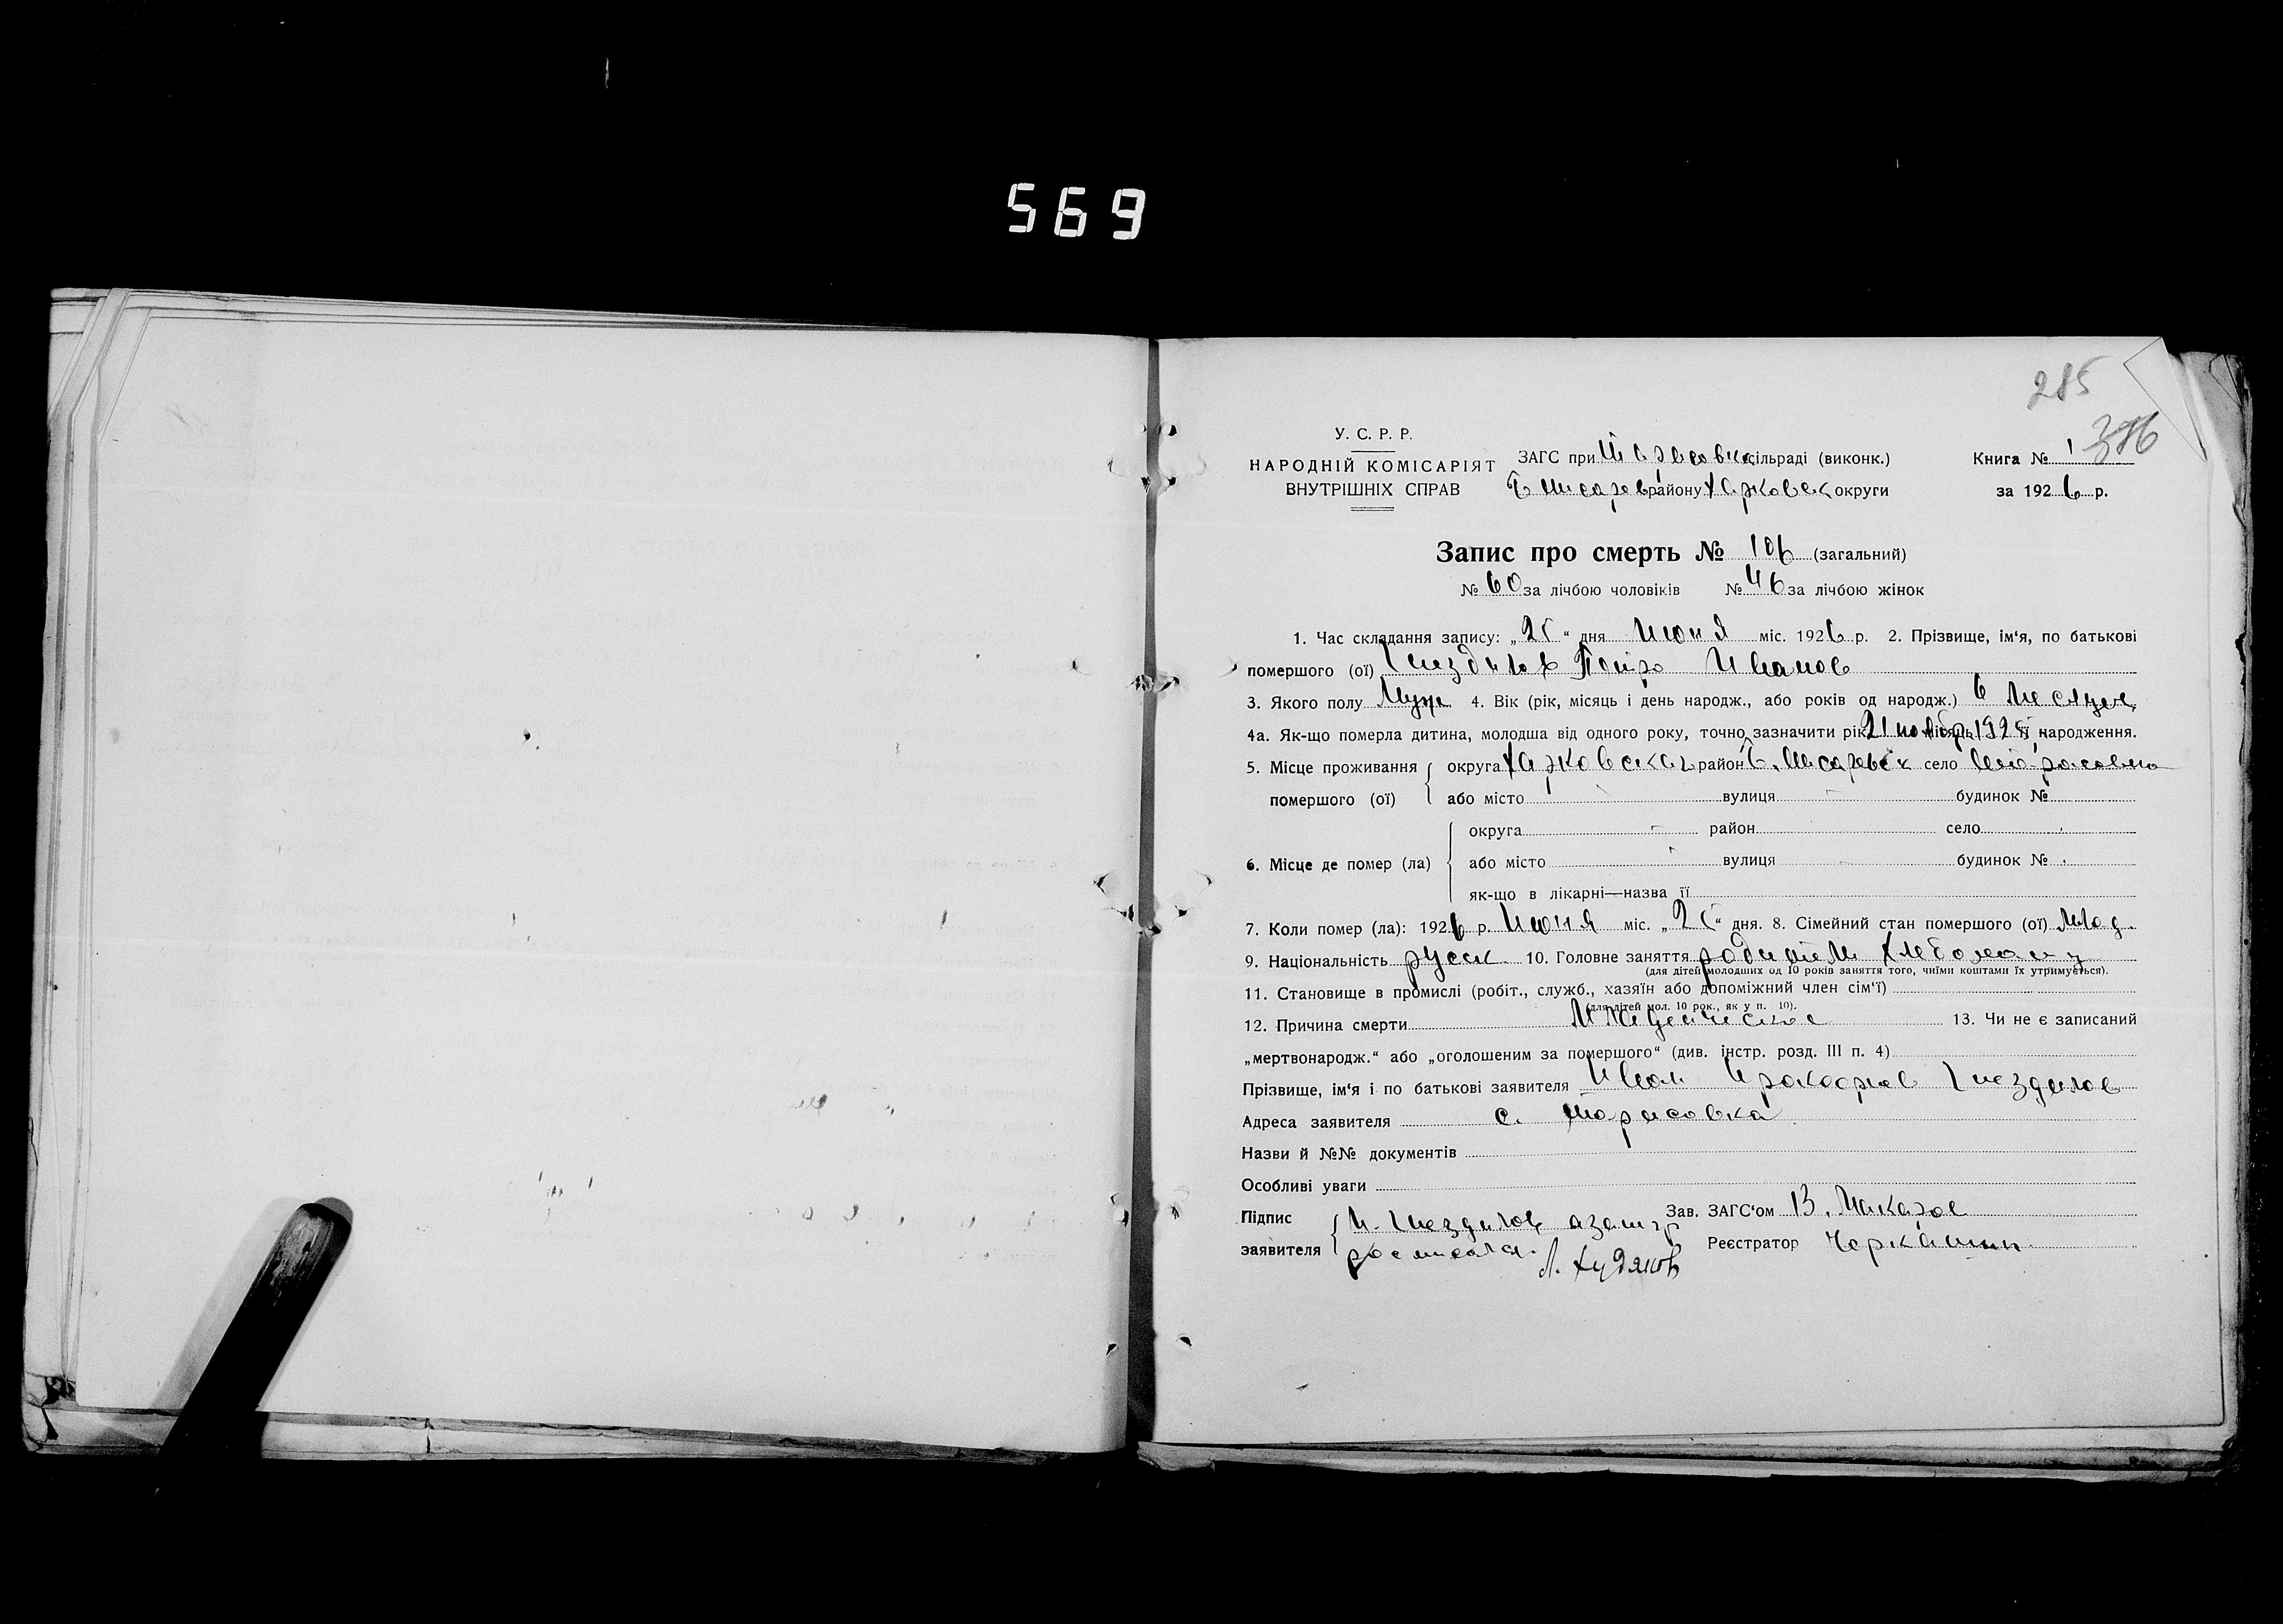 569
285
386
У. С. Р. Р.
НАРОДНІЙ КОМІСАРІЯТ
ВНУТРІШНІХ СПРАВ
ЗАГС при Тарасовка сільраді (виконк.)
Б Писарев району Харковск округи
Книга № 1
за 1926 р.
Запис про смерть № 106 (загальний)
№ 60 за лічбою чоловіків № 46 за лічбою жінок
1. Час складання запису: „25“ дня Июня міс. 1926 р. 2. Прізвище, ім‘я, по батькові
помершого (ої) Гнездилов Петро Иванов
3. Якого полу Муж 4. Вік (рік, місяць і день народж., або років од народж.) 6 месяцев
4а. Як-що померла дитина, молодша від одного року, точно зазначити рік, місяць 21 ноября 1925 її народження.
5. Місце проживання округа Харковская район Б. Писаревск село Тарасовка
помершого (ої) або місто вулиця будинок №
округа район село
6. Місце де помер (ла) або місто вулиця будинок №
як-що в лікарні—назва її
7. Коли помер (ла): 1926 р. Июня міс. „25“ дня. 8. Сімейний стан помершого (ої) млад.
9. Національність русск. 10. Головне заняття родители хлебопашц
(для дітей молодших од 10 років заняття того, чиїми коштами їх утримується).
11. Становище в промислі (робіт., служб., хазяїн або допоміжний член сім‘ї)
(для дітей мол. 10 рок., як у п. 10).
12. Причина смерти Младенческое 13. Чи не є записаний
„мертвонародж.“ або „оголошеним за помершого“ (див. інстр. розд. III п. 4)
Прізвище, ім‘я і по батькові заявителя Иван Прокофиев Гнездилов
Адреса заявителя с. Тарасовка
Назви й №№ документів
Особливі уваги
Підпис И. Гнездилов Зав. ЗАГС‘ом В. Макаров
заявителя росписался Реєстратор Черкашин
Л. Худяков